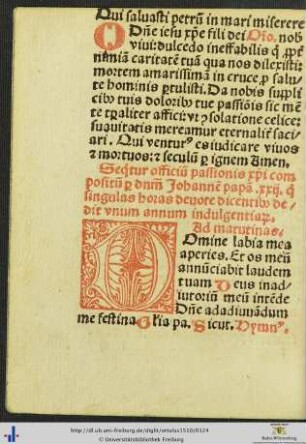 Qui saluasti petrū in mari miserere
O Dn̄e iesu xp̄e fili dei Ō̄o. nob
viui: dulcedo ineffabilis q̄ ꝓpt̄
nimiā caritatē tuā qua nos dilexisti:
mortem amarissimā in cruce ꝓ salu-
te hominis ꝑtulisti. Da nobis suppli
cibꝰ tuis doloribꝰ tue passiōis sic mē
te tꝛaliter affici: vt ꝯsolatione celice:
suauitatis mereamur eternalit̄ saci-
ari. Qui venturꝰ es iudicare viuos
⁊ mortuos: ⁊ seculū ꝑ ignem Amen.
Seq̄tur officiū passionis xp̄i com
positū ꝑ dn̄m Johannē papā .xxij. q̄
singulas horas deuote dicentibꝰ de-
dit vnum annum indulgentiaꝝ.
Ad matutinas.
Domine labia mea
aperies. Et os meū
annūciabit laudem
tuam Deus in ad/
iutoriū meū intēde
Dn̄e ad adiuuādum
me festina Gl̄ia pa. Sicut. Hymnꝰ.
http://dl.ub.uni-freiburg.de/diglit/ortulus1510/0124
© Universitätsbibliothek Freiburg
Baden-Württemberg